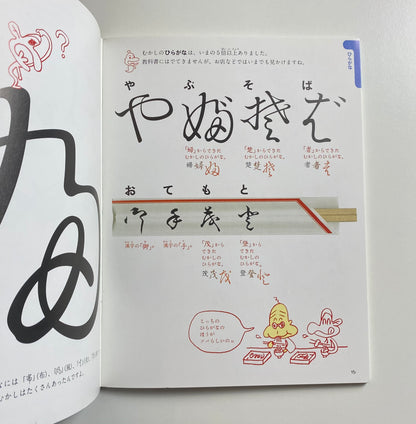 むかしのひらがなは、いまの5倍以上ありました。
教科書にはでてきませんが、お店などではいまでも見かけますね。
ひらがな
や ぶ そ ば
「婦」からできた
むかしのひらがな。
婦
「楚」からできた
むかしのひらがな。
楚 楚
「者」からできた
むかしのひらがな。
者 者
お て も と
御 手 茂 登
漢字の「御」。
漢字の「手」。
「茂」から
できた
むかしの
ひらがな。
茂 茂
「登」から
できた
むかしの
ひらがな。
登 登
こっちの
ひらがなの
ほうが
15
?
むかしはたくさんあったんですよ。